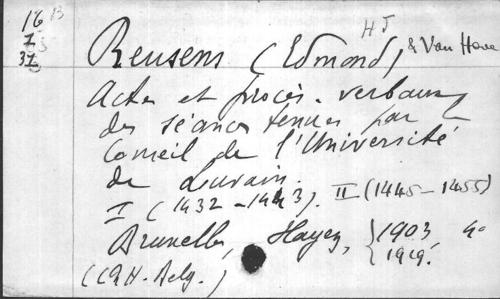 16
I
37
H J
Reusens (Edmond) & Van Hove
Actes et procès-verbaux
des séances tenues par le
Conseil de l'Université
de Louvain.
I (1432-1443). II (1445-1455)
Bruxelles, Hayez, 1903, 4°
1919.
(CRH-Belg.)